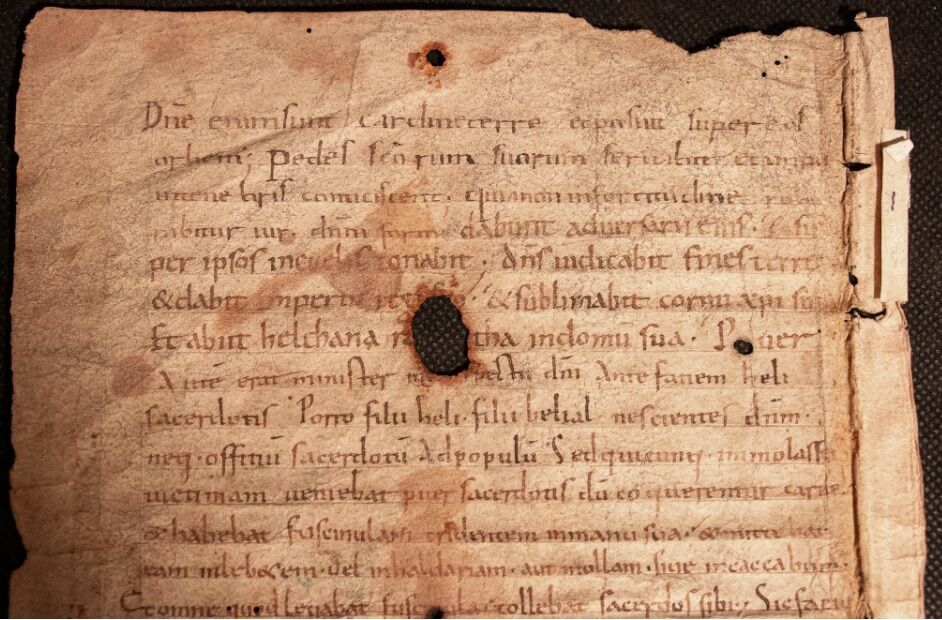 Dn̄e enim sunt cardine terre et posuit super eos
orbem; Pedes scōrum suorum servabit et impii
in tenebris conticiscent. quia non in fortitudine robo
rabitur vir. dn̄m formidabunt adversarii eius. & su
per ipsos in cęlis tonabit. dn̄s iudicabit fines terre
& dabit imperiū regi suo & sublimabit cornu xp̄i sui
Et abiit helchana ramatha in domū sua. Puer
Autē erat minister in conspectu dn̄i Ante faciem heli
sacerdotis Porro filii heli. filii belial nescientes dn̄m.
neq. offitiū sacerdotū Ad populū Sed quicunq. immolasset
victimam veniebat puer sacerdotis dū coquerentur carne
& habebat fuscinulam tridentem in manu sua. & mittebat
eam in leb&em. vel in caldariam. aut in ollam. sive in caccabum.
Et omne quod levabat fuscinula tollebat sacerdos sibi; Sic faci